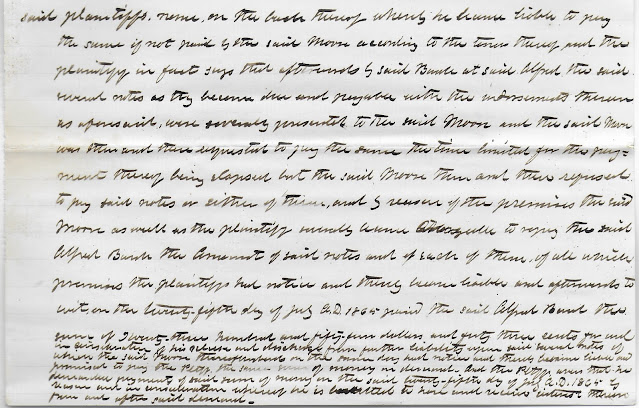 said plaintiffs. name, on the back thereof whereby he became liable to pay
the same if not paid by the said Moore according to the tenor thereof and the
plaintiff in fact says that afterwards by said Bank at said Alfred the said
several notes as they became due and payable with the indorsements thereon
as aforesaid, were severally presented to the said Moore and the said Moore
was then and there requested to pay the same the time limited for the pay-
ment thereof being elapsed but the said Moore then and there refused
to pay said notes or either of them, and by reason of the premises the said
Moore as well as the plaintiff severally became chargeable to repay the said
Alfred Bank the Amount of said notes and of each of them, of all which
premises the plaintiffs had notice and thereby became liable and afterwards to
wit, on the twenty-fifth day of July A.D. 1865 paid the said Alfred Bank the
sum of Twenty-three hundred and fifty-four dollars and forty three cents for and
in consideration of his release and discharge from further liability upon said several notes of
which the said Moore thereafterwards on the same day had notice and thereby became liable and
promised to pay the Plffs. the same sum of money on demand. And the Plffs avers that he
demanded payment of said sum of money on the said twenty-fifth day of July A.D. 1865 by
reason and in consideration whereof he is entitled to have and receive interest thereon
from and after said demand.